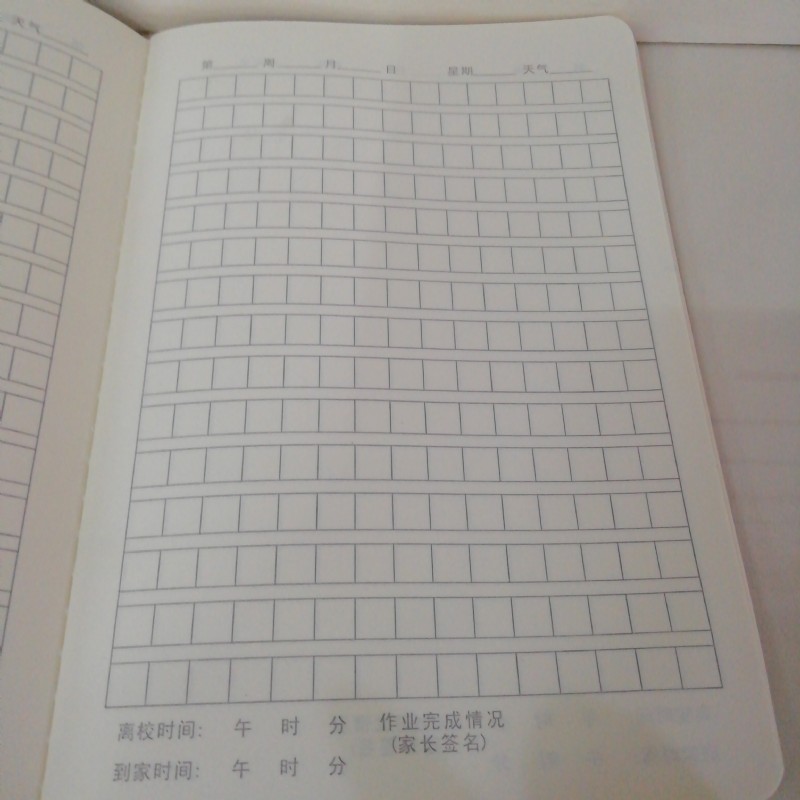 天气
第 周 月 日 星期 天气
离校时间: 午 时 分 作业完成情况
(家长签名)
到家时间: 午 时 分